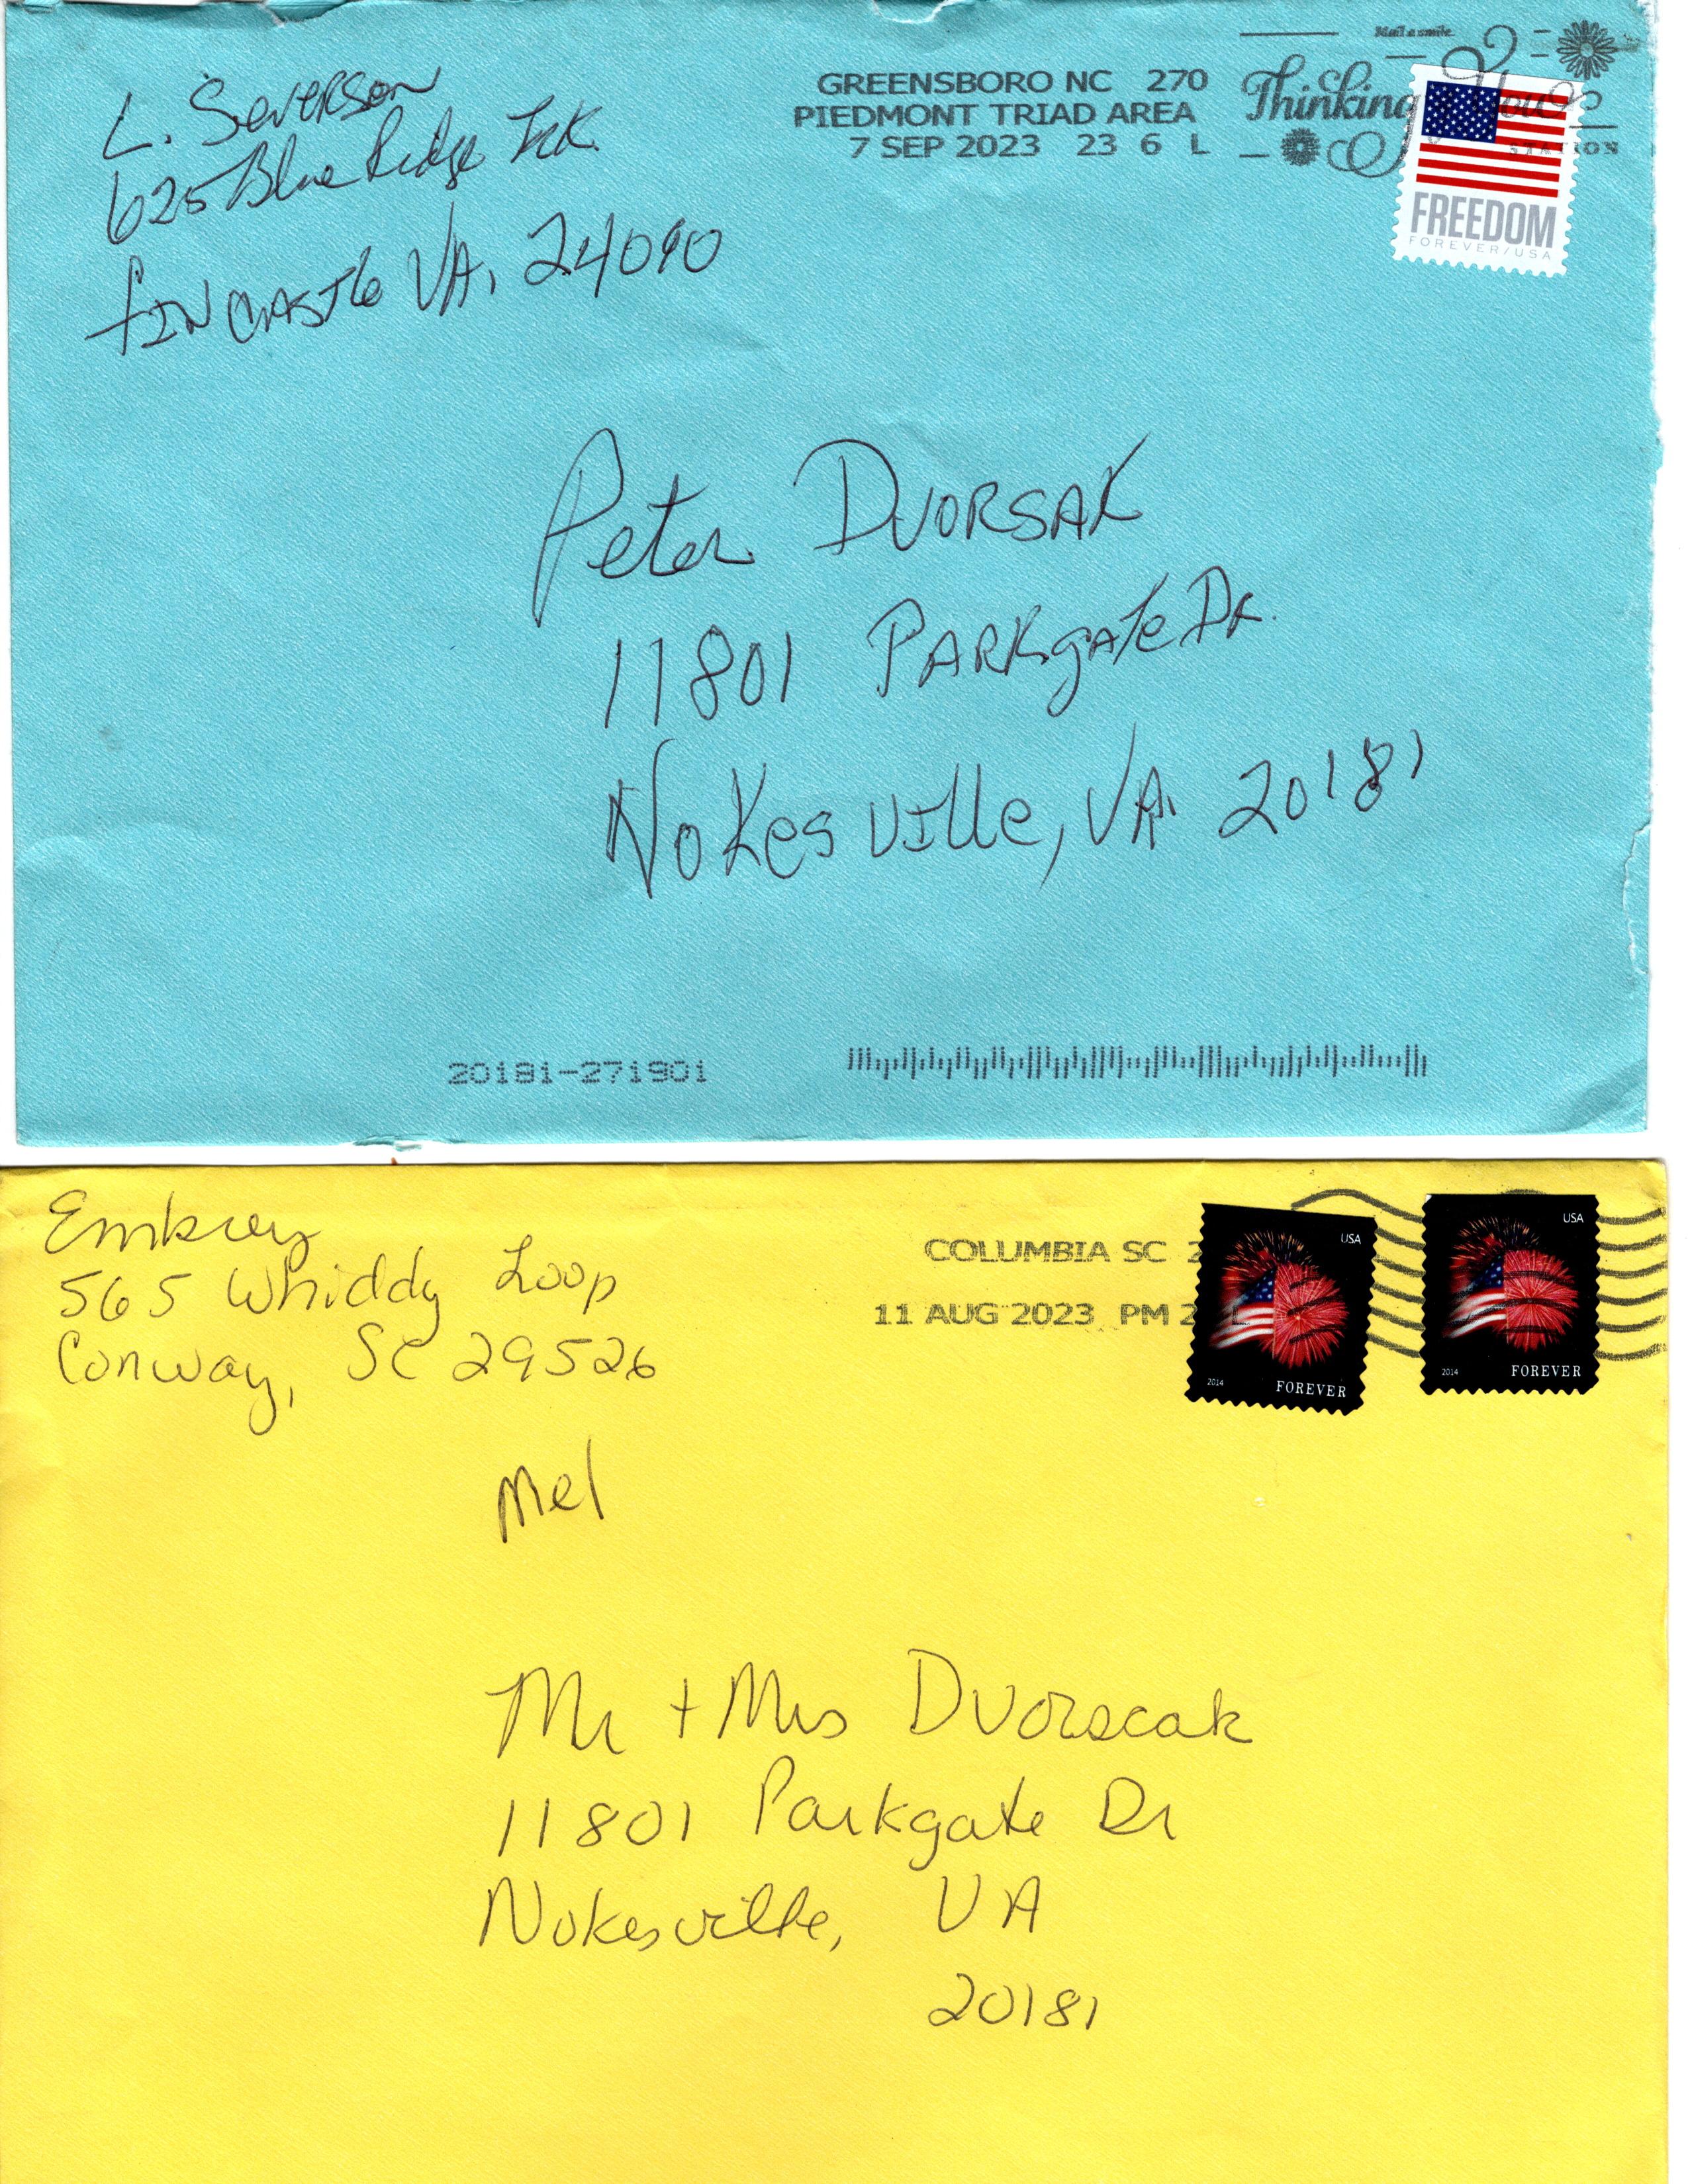 L. Severson
625 Blue Ridge Trk.
FINCASTle VA, 24090
GREENSBORO NC 270
PIEDMONT TRIAD AREA
7 SEP 2023 23 6 L
Mail a smile
Thinking of You
STATION
FREEDOM
FOREVER/USA
Peter DVORSAK
11801 PARKgATe DR.
NoKesvIlle, VA. 20181
20181-271901
Embrey
565 Whiddy Loop
Conway, SC 29526
Mel
COLUMBIA SC 2
11 AUG 2023 PM 2 L
USA
2014 FOREVER
USA
2014 FOREVER
Mr + Mrs Dvorscak
11801 Parkgate Dr
Nokesville, VA
20181